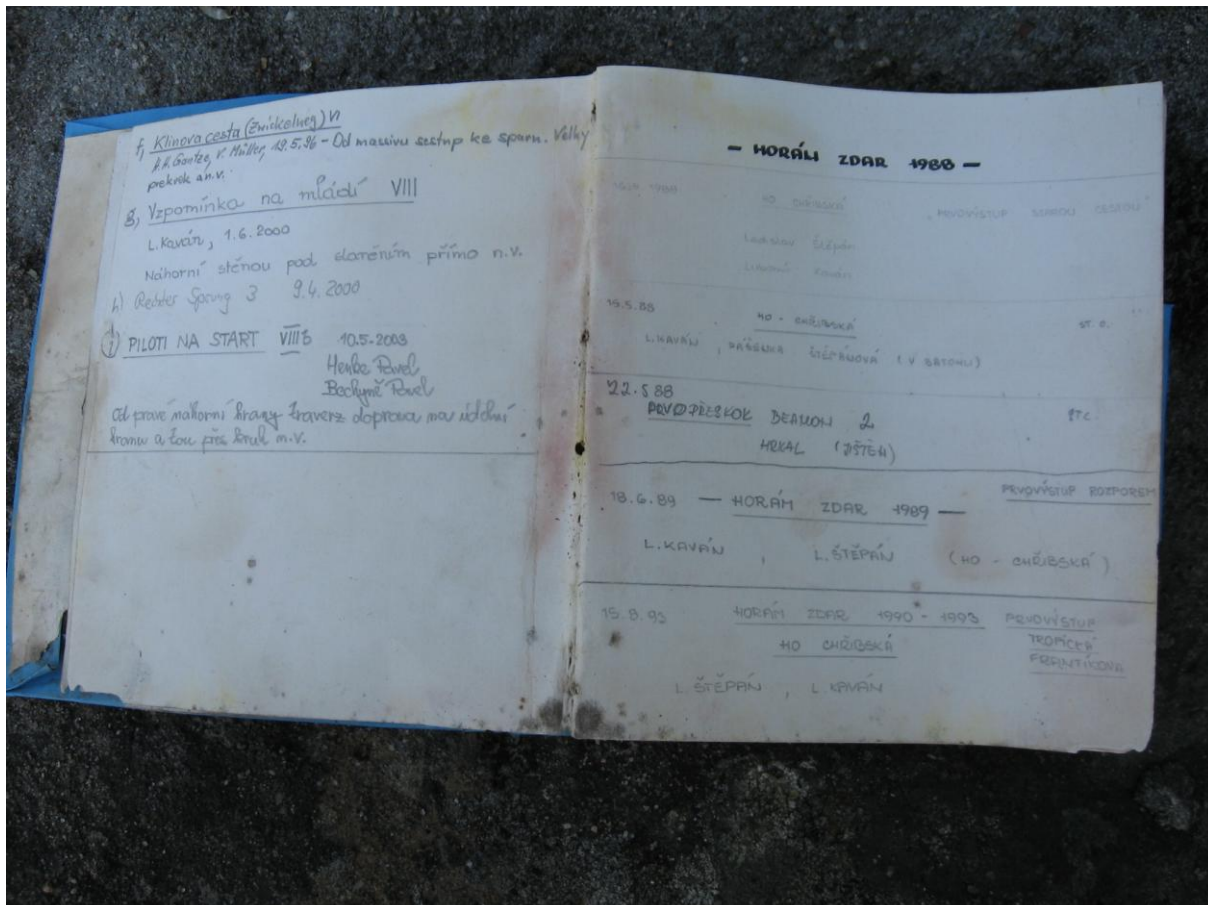 f, Klínová cesta (Zwickelweg) VI
Gantze, V. Müller, 19.5.96 - Od massivu sestup ke sparn. Velký
překrok a n.v.
g, Vzpomínka na mládí VIII
L. Kaván, 1.6.2000
Náhorní stěnou pod slaněním přímo n.v.
h) Rechter Sprung 3 9.4.2000
PILOTI NA START VIIIb 10.5-2003
Henke Pavel
Bechyně Pavel
Od pravé náhorní hrany traverz doprava na údolní
hranu a tou přes bruh n.v.
- HORÁM ZDAR 1988 -
1988 HO CHŘIBSKÁ , PRVOVÝSTUP STAROU CESTOU
Ladislav Štěpán
Kaván
15.5.88 HO - CHŘIBSKÁ ST. C.
L. KAVÁN , DÁŠENKA ŠTĚPÁNOVÁ (V BATOHU)
22.5 88
PRVOPŘESKOK BEAMON 2
HRKAL (JIŠTĚN)
PRVOVÝSTUP ROZPOREM
18.6.89 — HORÁM ZDAR 1989 —
L. KAVÁN , L. ŠTĚPÁN (HO - CHŘIBSKÁ)
15.8.93 HORÁM ZDAR 1990 - 1993 PRVOVÝSTUP
HO CHŘIBSKÁ TROPICKÁ
FRANTÍKOVA
L. ŠTĚPÁN , L. KAVÁN